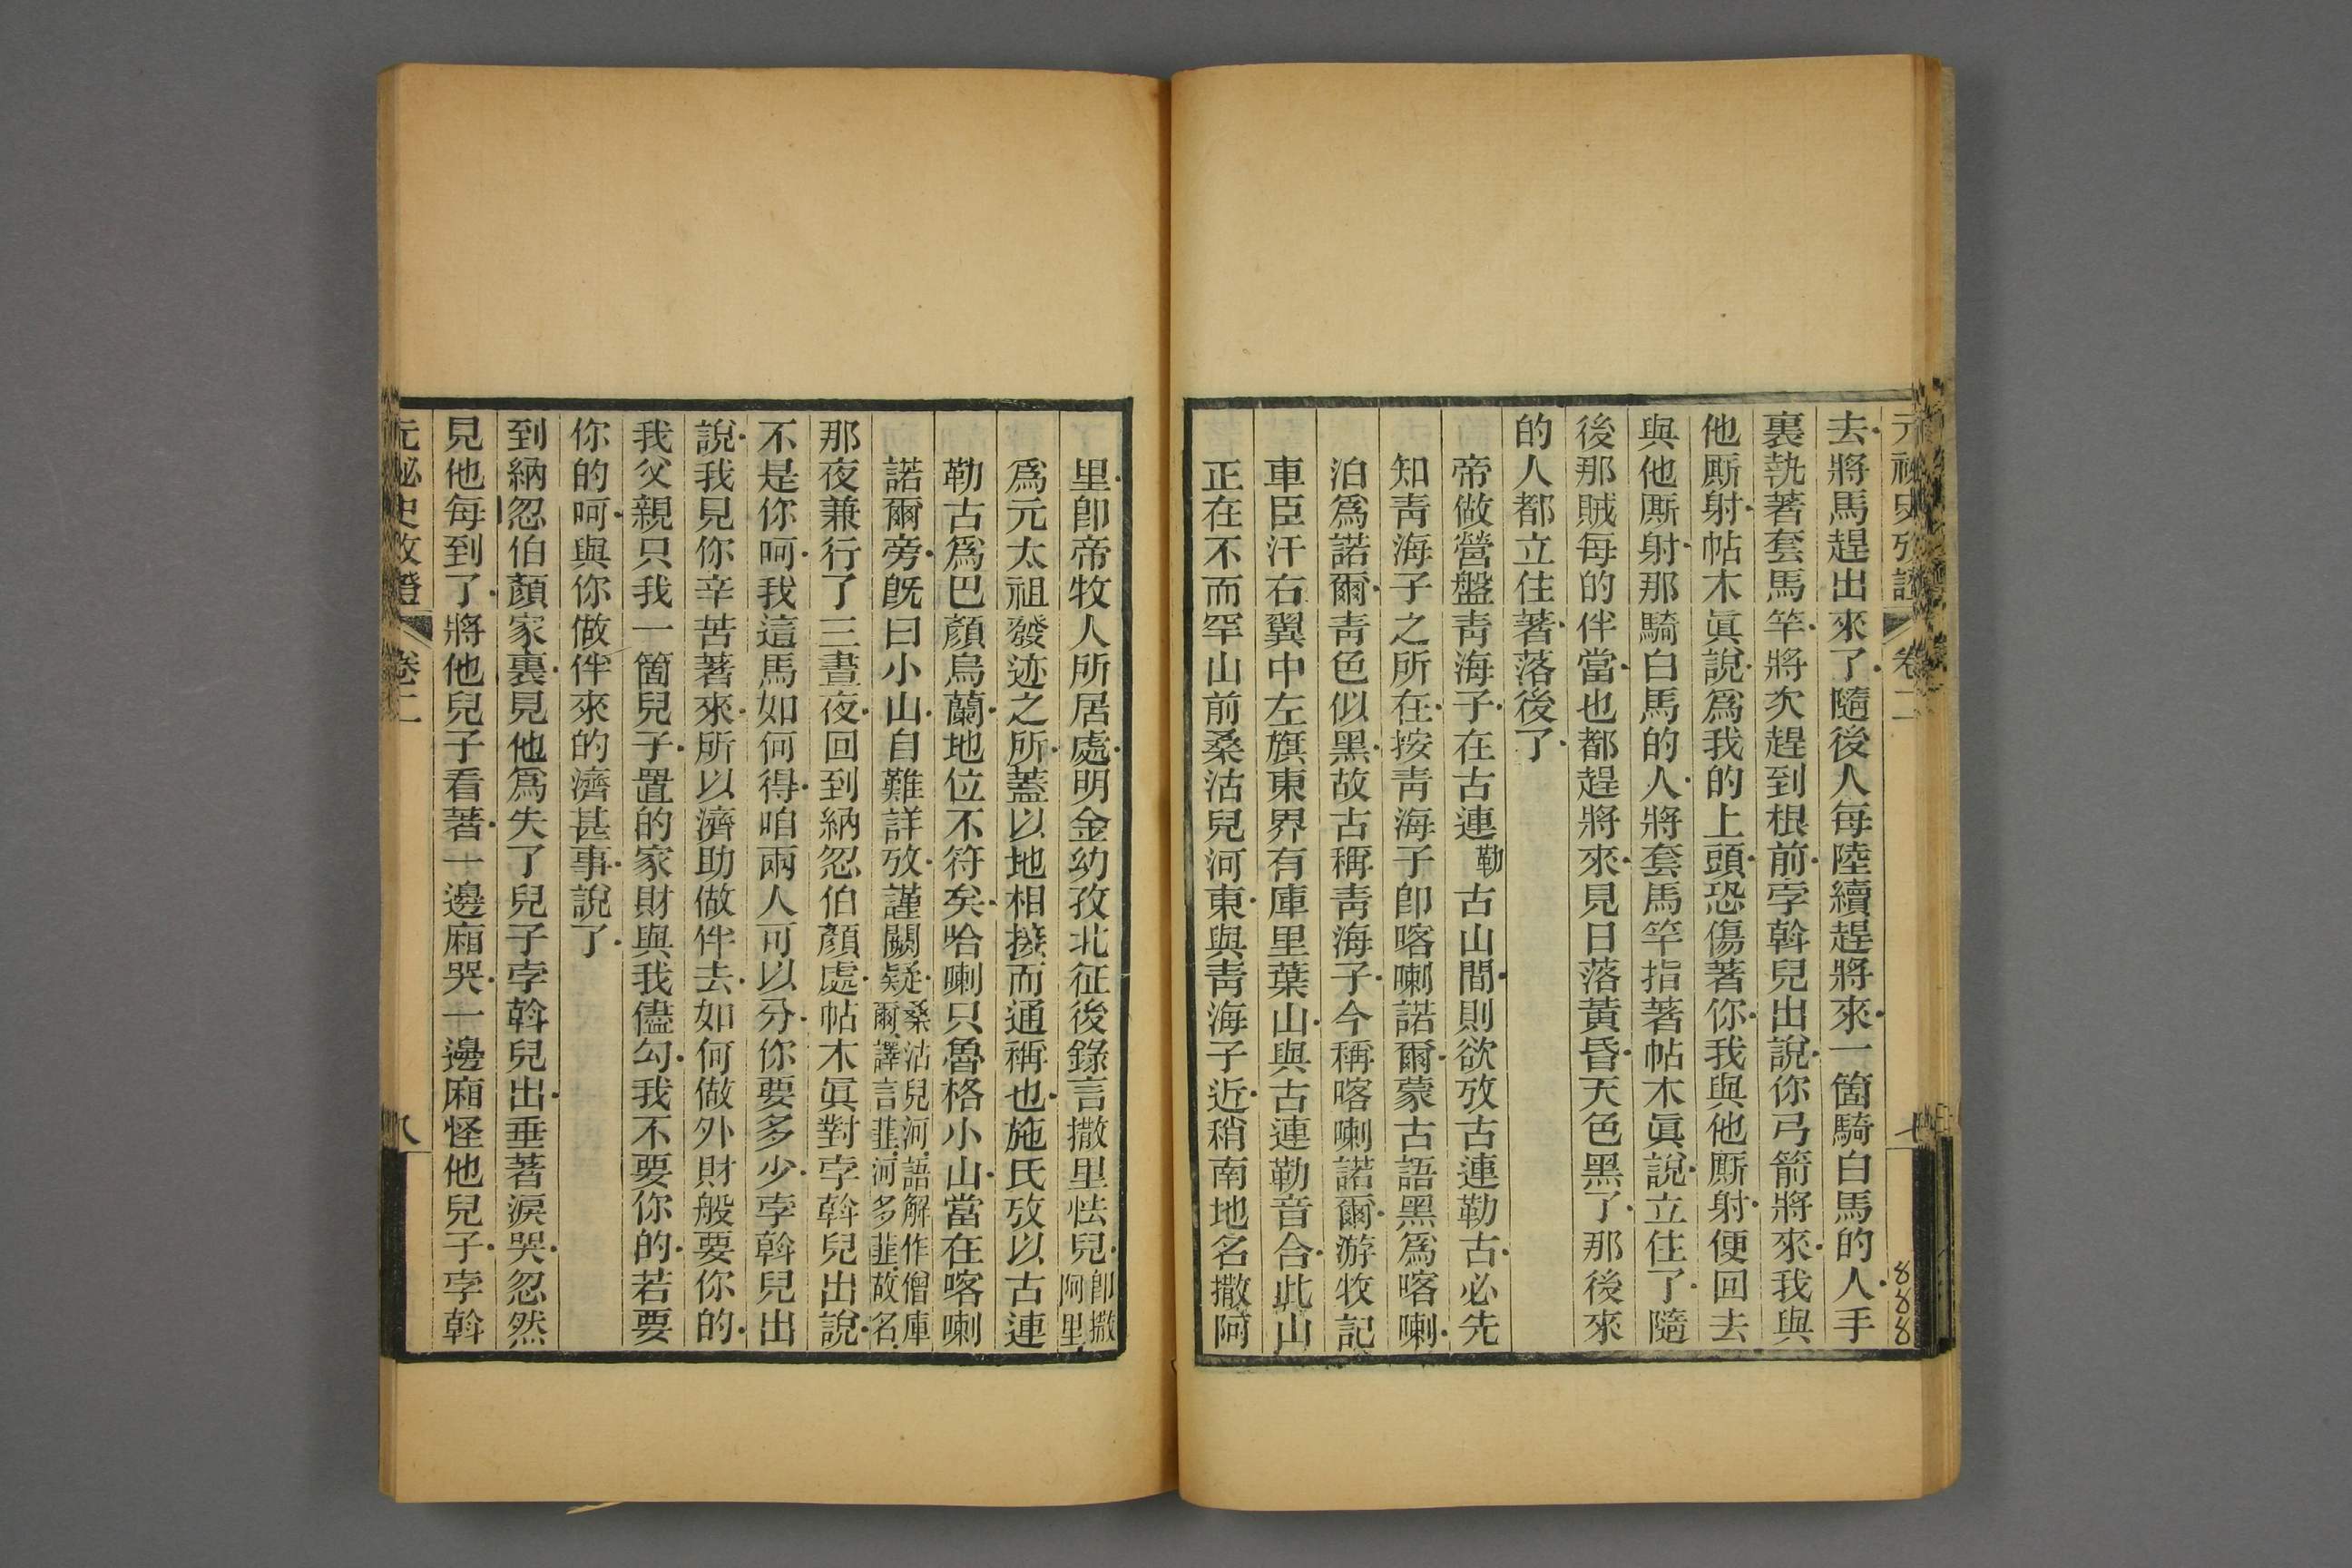 元祕史攷證 卷二 七
888
去將馬趕出來了隨後人每陸續趕將來一箇騎白馬的人手
裏執著套馬竿將次趕到根前孛斡兒出說你弓箭將來我與
他厮射帖木眞說爲我的上頭恐傷著你我與他厮射便回去
與他厮射那騎白馬的人將套馬竿指著帖木眞說立住了隨
後那賊每的伴當也都趕將來見日落黃昏天色黑了那後來
的人都立住著落後了
帝做營盤靑海子在古連勒古山間則欲攷古連勒古必先
知靑海子之所在按靑海子卽喀喇諾爾蒙古語黑爲喀喇
泊爲諾爾靑色似黑故古稱靑海子今稱喀喇諾爾游牧記
車臣汗右翼中左旗東界有庫里葉山與古連勒音合此山
正在不而罕山前桑沽兒河東與靑海子近稍南地名撒阿
里卽帝牧人所居處明金幼孜北征後錄言撒里怯兒卽撒阿里
爲元太祖發迹之所蓋以地相接而通稱也施氏攷以古連
勒古爲巴顏烏蘭地位不符矣哈喇只魯格小山當在喀喇
諾爾旁旣曰小山自難詳攷謹闕疑桑沽兒河語解作僧庫爾譯言韭河多韭故名
那夜兼行了三晝夜回到納忽伯顏處帖木眞對孛斡兒出說
不是你呵我這馬如何得咱兩人可以分你要多少孛斡兒出
說我見你辛苦著來所以濟助做伴去如何做外財般要你的
我父親只我一箇兒子置的家財與我儘勾我不要你的若要
你的呵與你做伴來的濟甚事說了
到納忽伯顏家裏見他爲失了兒子孛斡兒出垂著淚哭忽然
見他每到了將他兒子看著一邊廂哭一邊廂怪他兒子孛斡
元祕史攷證 卷二 八